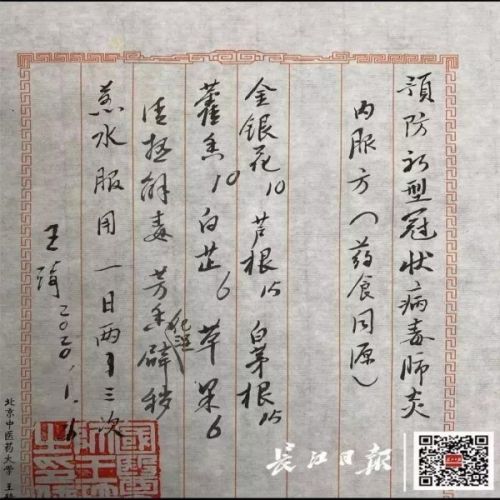 预防新型冠状病毒肺炎
内服方（药食同源）
金银花10 芦根15 白茅根15
藿香10 白芷6 草果6
清热解毒 芳香化湿辟秽
煮水服用 一日两到三次
王琦 2020.1.
北京中医药大学 王
长江日报